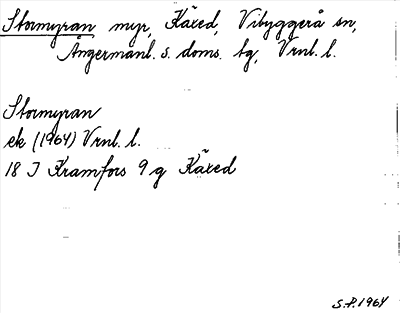 Stormyran myr, Käxed, Vibyggerå sn,
Ångermanl. s. doms. tg, Vrnl. l.
Stormyran
ek (1964) Vrnl. l.
18 J Kramfors 9 g Käxed
S.P. 1964